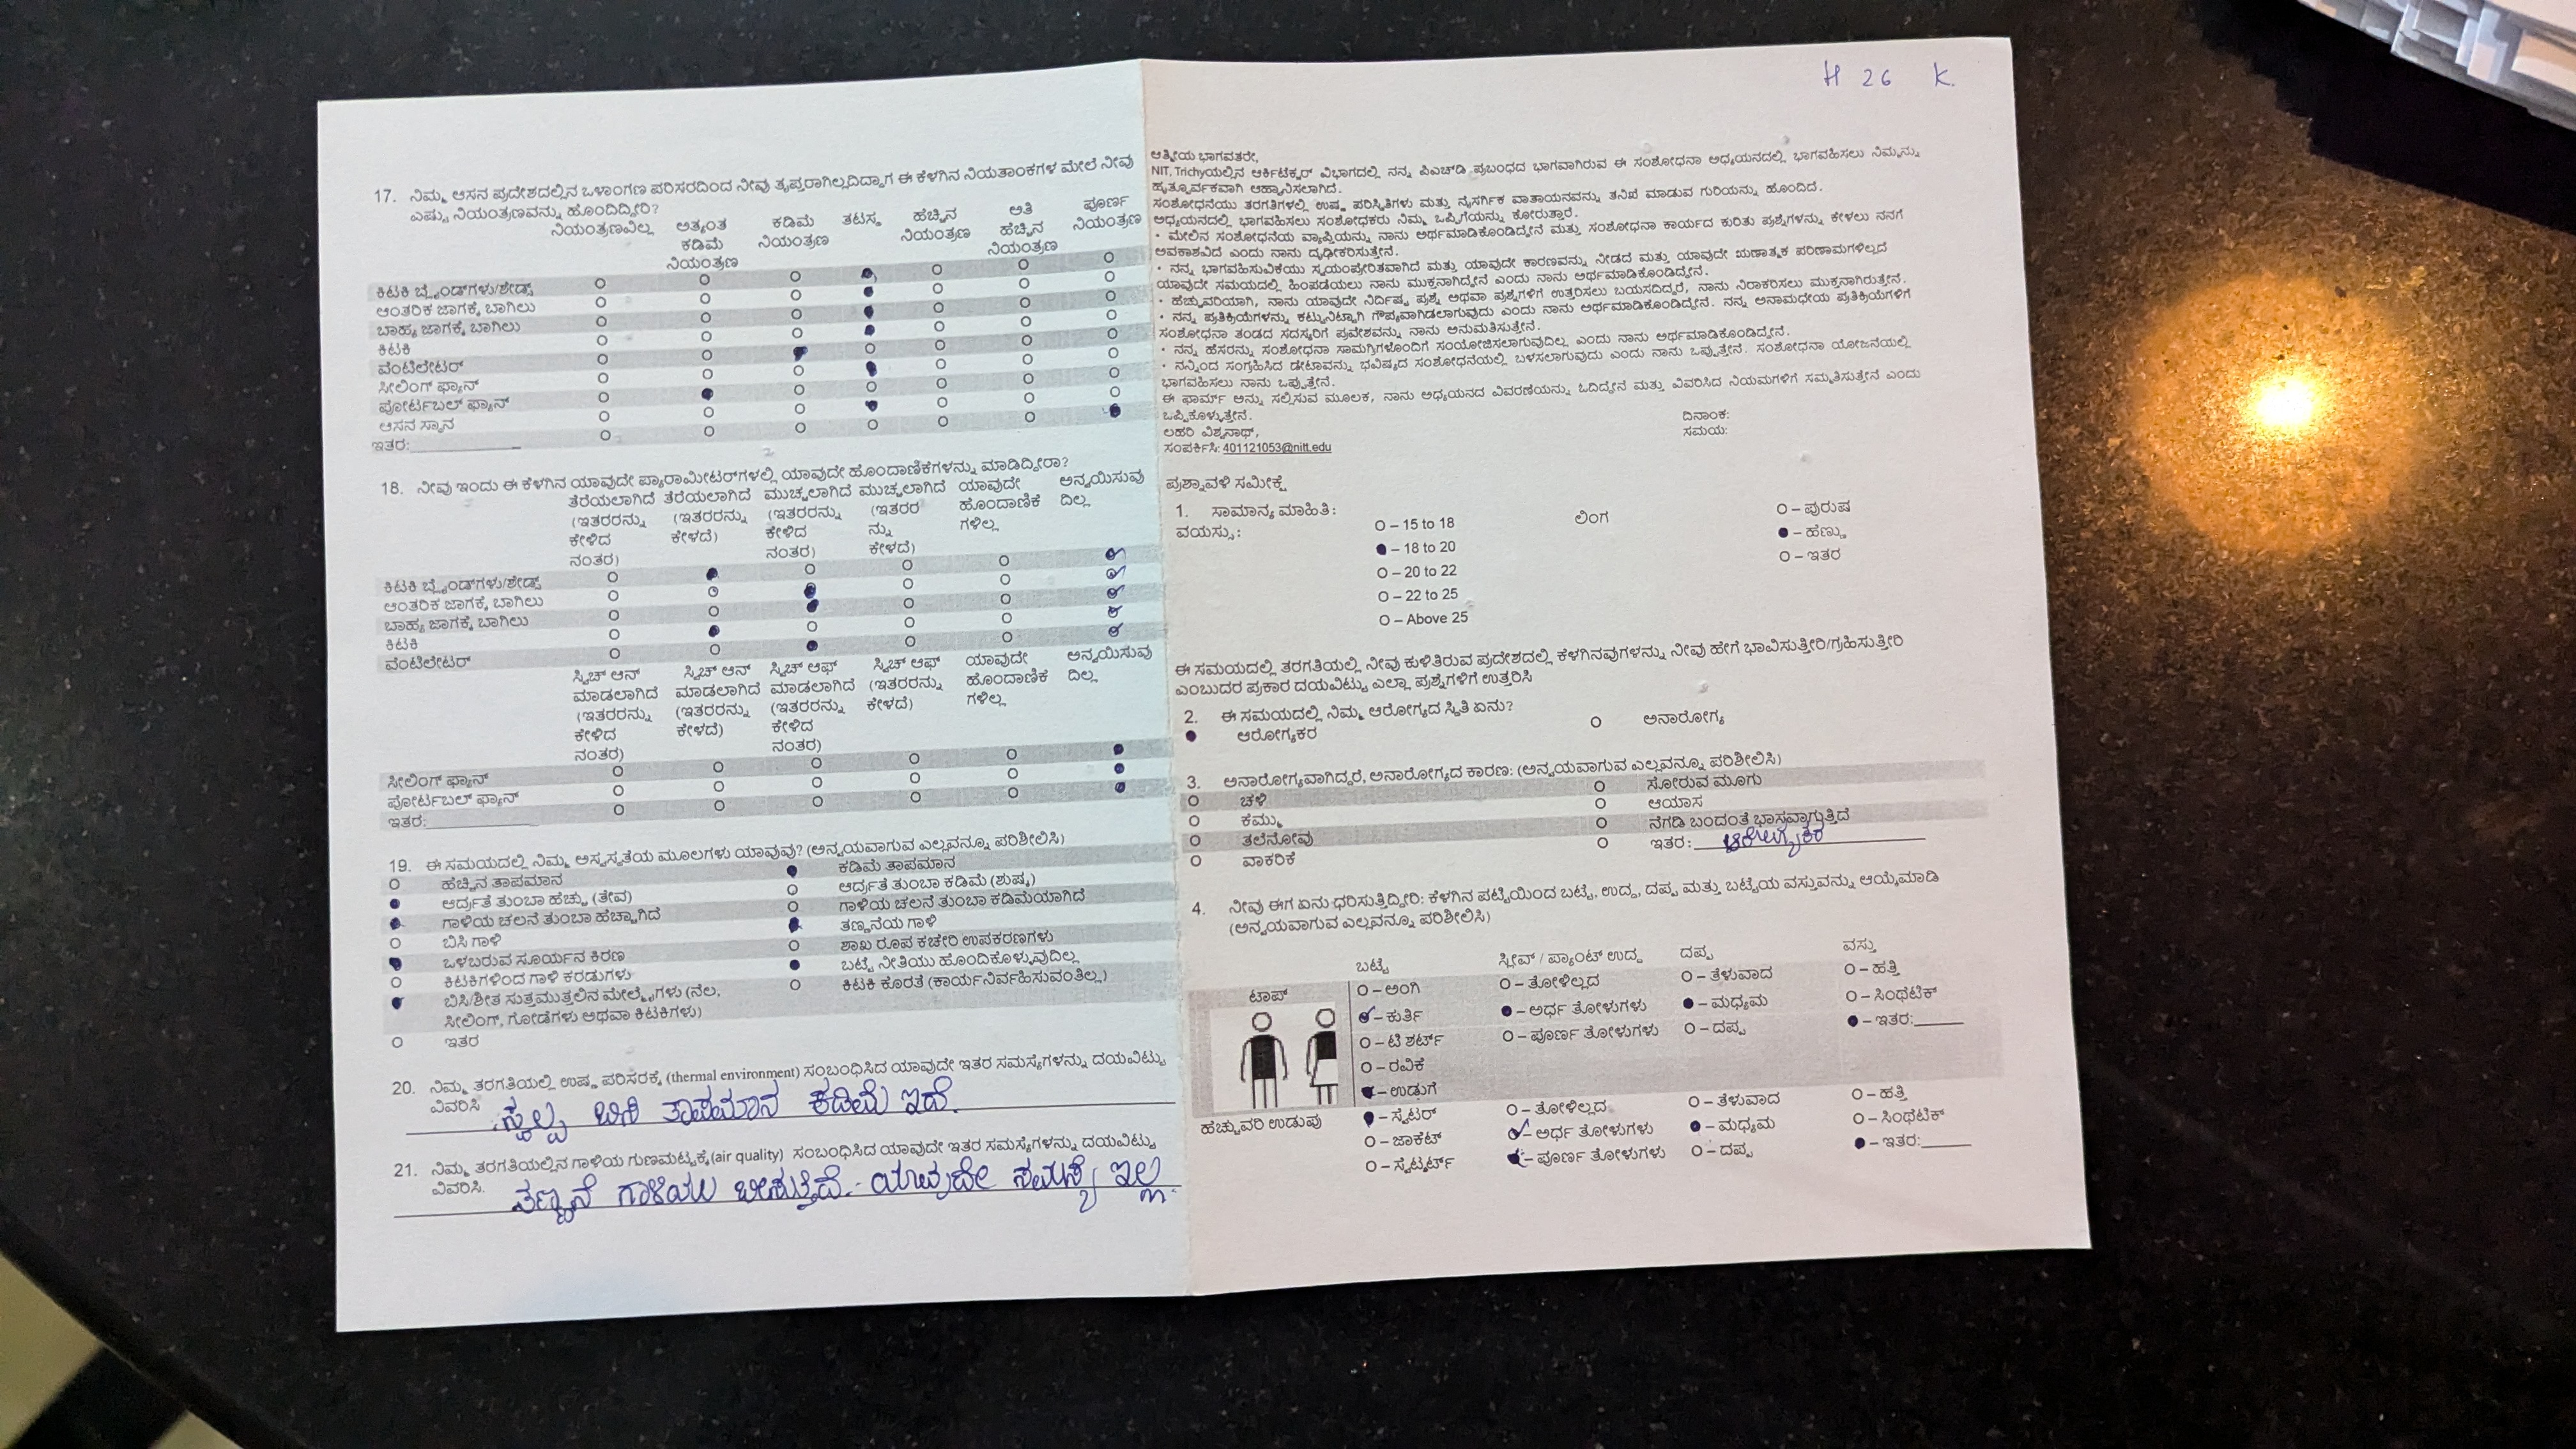 17. ನಿಮ್ಮ ಆಸನ ಪ್ರದೇಶದಲ್ಲಿನ ಒಳಾಂಗಣ ಪರಿಸರದಿಂದ ನೀವು ತೃಪ್ತರಾಗಿಲ್ಲದಿದ್ದಾಗ ಈ ಕೆಳಗಿನ ನಿಯತಾಂಕಗಳ ಮೇಲೆ ನೀವು
ಎಷ್ಟು ನಿಯಂತ್ರಣವನ್ನು ಹೊಂದಿದ್ದೀರಿ?
ನಿಯಂತ್ರಣವಿಲ್ಲ ಅತ್ಯಂತ ಕಡಿಮೆ ನಿಯಂತ್ರಣ ಕಡಿಮೆ ನಿಯಂತ್ರಣ ತಟಸ್ಥ ಹೆಚ್ಚಿನ ನಿಯಂತ್ರಣ ಅತಿ ಹೆಚ್ಚಿನ ನಿಯಂತ್ರಣ ಪೂರ್ಣ ನಿಯಂತ್ರಣ
ಕಿಟಕಿ ಬ್ಲೈಂಡ್‌ಗಳು/ಶೇಡ್ಸ್
ಆಂತರಿಕ ಜಾಗಕ್ಕೆ ಬಾಗಿಲು
ಬಾಹ್ಯ ಜಾಗಕ್ಕೆ ಬಾಗಿಲು
ಕಿಟಕಿ
ವೆಂಟಿಲೇಟರ್
ಸೀಲಿಂಗ್ ಫ್ಯಾನ್
ಪೋರ್ಟಬಲ್ ಫ್ಯಾನ್
ಆಸನ ಸ್ಥಾನ
ಇತರ:
18. ನೀವು ಇಂದು ಈ ಕೆಳಗಿನ ಯಾವುದೇ ಪ್ಯಾರಾಮೀಟರ್‌ಗಳಲ್ಲಿ ಯಾವುದೇ ಹೊಂದಾಣಿಕೆಗಳನ್ನು ಮಾಡಿದ್ದೀರಾ?
ತೆರೆಯಲಾಗಿದೆ (ಇತರರನ್ನು ಕೇಳಿದ ನಂತರ) ತೆರೆಯಲಾಗಿದೆ (ಇತರರನ್ನು ಕೇಳದೆ) ಮುಚ್ಚಲಾಗಿದೆ (ಇತರರನ್ನು ಕೇಳಿದ ನಂತರ) ಮುಚ್ಚಲಾಗಿದೆ (ಇತರರ ನ್ನು ಕೇಳದೆ) ಯಾವುದೇ ಹೊಂದಾಣಿಕೆ ಗಳಿಲ್ಲ ಅನ್ವಯಿಸುವು ದಿಲ್ಲ
ಕಿಟಕಿ ಬ್ಲೈಂಡ್‌ಗಳು/ಶೇಡ್ಸ್
ಆಂತರಿಕ ಜಾಗಕ್ಕೆ ಬಾಗಿಲು
ಬಾಹ್ಯ ಜಾಗಕ್ಕೆ ಬಾಗಿಲು
ಕಿಟಕಿ
ವೆಂಟಿಲೇಟರ್
ಸ್ವಿಚ್ ಆನ್ ಮಾಡಲಾಗಿದೆ (ಇತರರನ್ನು ಕೇಳಿದ ನಂತರ) ಸ್ವಿಚ್ ಆನ್ ಮಾಡಲಾಗಿದೆ (ಇತರರನ್ನು ಕೇಳದೆ) ಸ್ವಿಚ್ ಆಫ್ ಮಾಡಲಾಗಿದೆ (ಇತರರನ್ನು ಕೇಳಿದ ನಂತರ) ಸ್ವಿಚ್ ಆಫ್ (ಇತರರನ್ನು ಕೇಳದೆ) ಯಾವುದೇ ಹೊಂದಾಣಿಕೆ ಗಳಿಲ್ಲ ಅನ್ವಯಿಸುವು ದಿಲ್ಲ
ಸೀಲಿಂಗ್ ಫ್ಯಾನ್
ಪೋರ್ಟಬಲ್ ಫ್ಯಾನ್
ಇತರ:
19. ಈ ಸಮಯದಲ್ಲಿ ನಿಮ್ಮ ಅಸ್ವಸ್ಥತೆಯ ಮೂಲಗಳು ಯಾವುವು? (ಅನ್ವಯವಾಗುವ ಎಲ್ಲವನ್ನೂ ಪರಿಶೀಲಿಸಿ)
ಹೆಚ್ಚಿನ ತಾಪಮಾನ ಕಡಿಮೆ ತಾಪಮಾನ
ಆರ್ದ್ರತೆ ತುಂಬಾ ಹೆಚ್ಚು (ತೇವ) ಆರ್ದ್ರತೆ ತುಂಬಾ ಕಡಿಮೆ (ಶುಷ್ಕ)
ಗಾಳಿಯ ಚಲನೆ ತುಂಬಾ ಹೆಚ್ಚಾಗಿದೆ ಗಾಳಿಯ ಚಲನೆ ತುಂಬಾ ಕಡಿಮೆಯಾಗಿದೆ
ಬಿಸಿ ಗಾಳಿ ತಣ್ಣನೆಯ ಗಾಳಿ
ಒಳಬರುವ ಸೂರ್ಯನ ಕಿರಣ ಶಾಖ ರೂಪ ಕಚೇರಿ ಉಪಕರಣಗಳು
ಕಿಟಕಿಗಳಿಂದ ಗಾಳಿ ಕರಡುಗಳು ಬಟ್ಟೆ ನೀತಿಯು ಹೊಂದಿಕೊಳ್ಳುವುದಿಲ್ಲ
ಬಿಸಿ/ಶೀತ ಸುತ್ತಮುತ್ತಲಿನ ಮೇಲ್ಮೈಗಳು (ನೆಲ, ಕಿಟಕಿ ಕೊರತೆ (ಕಾರ್ಯನಿರ್ವಹಿಸುವಂತಿಲ್ಲ)
ಸೀಲಿಂಗ್, ಗೋಡೆಗಳು ಅಥವಾ ಕಿಟಕಿಗಳು)
ಇತರ
20. ನಿಮ್ಮ ತರಗತಿಯಲ್ಲಿ ಉಷ್ಣ ಪರಿಸರಕ್ಕೆ (thermal environment) ಸಂಬಂಧಿಸಿದ ಯಾವುದೇ ಇತರ ಸಮಸ್ಯೆಗಳನ್ನು ದಯವಿಟ್ಟು
ವಿವರಿಸಿ ಸ್ವಲ್ಪ ಬಿಸಿ ತಾಪಮಾನ ಕಡಿಮೆ ಇದೆ.
21. ನಿಮ್ಮ ತರಗತಿಯಲ್ಲಿನ ಗಾಳಿಯ ಗುಣಮಟ್ಟಕ್ಕೆ (air quality) ಸಂಬಂಧಿಸಿದ ಯಾವುದೇ ಇತರ ಸಮಸ್ಯೆಗಳನ್ನು ದಯವಿಟ್ಟು
ವಿವರಿಸಿ. ತಣ್ಣನೆ ಗಾಳಿಯು ಬೀಸುತ್ತಿದೆ. ಯಾವುದೇ ಸಮಸ್ಯೆ ಇಲ್ಲ.
H 26 K.
ಆತ್ಮೀಯ ಭಾಗವತರೇ,
NIT, Trichyಯಲ್ಲಿನ ಆರ್ಕಿಟೆಕ್ಚರ್ ವಿಭಾಗದಲ್ಲಿ ನನ್ನ ಪಿಎಚ್‌ಡಿ ಪ್ರಬಂಧದ ಭಾಗವಾಗಿರುವ ಈ ಸಂಶೋಧನಾ ಅಧ್ಯಯನದಲ್ಲಿ ಭಾಗವಹಿಸಲು ನಿಮ್ಮನ್ನು
ಹೃತ್ಪೂರ್ವಕವಾಗಿ ಆಹ್ವಾನಿಸಲಾಗಿದೆ.
ಸಂಶೋಧನೆಯು ತರಗತಿಗಳಲ್ಲಿ ಉಷ್ಣ ಪರಿಸ್ಥಿತಿಗಳು ಮತ್ತು ನೈಸರ್ಗಿಕ ವಾತಾಯನವನ್ನು ತನಿಖೆ ಮಾಡುವ ಗುರಿಯನ್ನು ಹೊಂದಿದೆ.
ಅಧ್ಯಯನದಲ್ಲಿ ಭಾಗವಹಿಸಲು ಸಂಶೋಧಕರು ನಿಮ್ಮ ಒಪ್ಪಿಗೆಯನ್ನು ಕೋರುತ್ತಾರೆ.
• ಮೇಲಿನ ಸಂಶೋಧನೆಯ ವ್ಯಾಪ್ತಿಯನ್ನು ನಾನು ಅರ್ಥಮಾಡಿಕೊಂಡಿದ್ದೇನೆ ಮತ್ತು ಸಂಶೋಧನಾ ಕಾರ್ಯದ ಕುರಿತು ಪ್ರಶ್ನೆಗಳನ್ನು ಕೇಳಲು ನನಗೆ
ಅವಕಾಶವಿದೆ ಎಂದು ನಾನು ದೃಢೀಕರಿಸುತ್ತೇನೆ.
• ನನ್ನ ಭಾಗವಹಿಸುವಿಕೆಯು ಸ್ವಯಂಪ್ರೇರಿತವಾಗಿದೆ ಮತ್ತು ಯಾವುದೇ ಕಾರಣವನ್ನು ನೀಡದೆ ಮತ್ತು ಯಾವುದೇ ಋಣಾತ್ಮಕ ಪರಿಣಾಮಗಳಿಲ್ಲದೆ
ಯಾವುದೇ ಸಮಯದಲ್ಲಿ ಹಿಂಪಡೆಯಲು ನಾನು ಮುಕ್ತನಾಗಿದ್ದೇನೆ ಎಂದು ನಾನು ಅರ್ಥಮಾಡಿಕೊಂಡಿದ್ದೇನೆ.
• ಹೆಚ್ಚುವರಿಯಾಗಿ, ನಾನು ಯಾವುದೇ ನಿರ್ದಿಷ್ಟ ಪ್ರಶ್ನೆ ಅಥವಾ ಪ್ರಶ್ನೆಗಳಿಗೆ ಉತ್ತರಿಸಲು ಬಯಸದಿದ್ದರೆ, ನಾನು ನಿರಾಕರಿಸಲು ಮುಕ್ತನಾಗಿರುತ್ತೇನೆ.
• ನನ್ನ ಪ್ರತಿಕ್ರಿಯೆಗಳನ್ನು ಕಟ್ಟುನಿಟ್ಟಾಗಿ ಗೌಪ್ಯವಾಗಿಡಲಾಗುವುದು ಎಂದು ನಾನು ಅರ್ಥಮಾಡಿಕೊಂಡಿದ್ದೇನೆ. ನನ್ನ ಅನಾಮಧೇಯ ಪ್ರತಿಕ್ರಿಯೆಗಳಿಗೆ
ಸಂಶೋಧನಾ ತಂಡದ ಸದಸ್ಯರಿಗೆ ಪ್ರವೇಶವನ್ನು ನಾನು ಅನುಮತಿಸುತ್ತೇನೆ.
• ನನ್ನ ಹೆಸರನ್ನು ಸಂಶೋಧನಾ ಸಾಮಗ್ರಿಗಳೊಂದಿಗೆ ಸಂಯೋಜಿಸಲಾಗುವುದಿಲ್ಲ ಎಂದು ನಾನು ಅರ್ಥಮಾಡಿಕೊಂಡಿದ್ದೇನೆ.
• ನನ್ನಿಂದ ಸಂಗ್ರಹಿಸಿದ ಡೇಟಾವನ್ನು ಭವಿಷ್ಯದ ಸಂಶೋಧನೆಯಲ್ಲಿ ಬಳಸಲಾಗುವುದು ಎಂದು ನಾನು ಒಪ್ಪುತ್ತೇನೆ. ಸಂಶೋಧನಾ ಯೋಜನೆಯಲ್ಲಿ
ಭಾಗವಹಿಸಲು ನಾನು ಒಪ್ಪುತ್ತೇನೆ.
ಈ ಫಾರ್ಮ್ ಅನ್ನು ಸಲ್ಲಿಸುವ ಮೂಲಕ, ನಾನು ಅಧ್ಯಯನದ ವಿವರಣೆಯನ್ನು ಓದಿದ್ದೇನೆ ಮತ್ತು ವಿವರಿಸಿದ ನಿಯಮಗಳಿಗೆ ಸಮ್ಮತಿಸುತ್ತೇನೆ ಎಂದು
ಒಪ್ಪಿಕೊಳ್ಳುತ್ತೇನೆ. ದಿನಾಂಕ:
ಲಹರಿ ವಿಶ್ವನಾಥ್, ಸಮಯ:
ಸಂಪರ್ಕಿಸಿ: 401121053@nitt.edu
ಪ್ರಶ್ನಾವಳಿ ಸಮೀಕ್ಷೆ
1. ಸಾಮಾನ್ಯ ಮಾಹಿತಿ:
ವಯಸ್ಸು: – 15 to 18 ಲಿಂಗ – ಪುರುಷ
– 18 to 20 – ಹೆಣ್ಣು
– 20 to 22 – ಇತರ
– 22 to 25
– Above 25
ಈ ಸಮಯದಲ್ಲಿ ತರಗತಿಯಲ್ಲಿ ನೀವು ಕುಳಿತಿರುವ ಪ್ರದೇಶದಲ್ಲಿ ಕೆಳಗಿನವುಗಳನ್ನು ನೀವು ಹೇಗೆ ಭಾವಿಸುತ್ತೀರಿ/ಗ್ರಹಿಸುತ್ತೀರಿ
ಎಂಬುದರ ಪ್ರಕಾರ ದಯವಿಟ್ಟು ಎಲ್ಲಾ ಪ್ರಶ್ನೆಗಳಿಗೆ ಉತ್ತರಿಸಿ
2. ಈ ಸಮಯದಲ್ಲಿ ನಿಮ್ಮ ಆರೋಗ್ಯದ ಸ್ಥಿತಿ ಏನು?
ಆರೋಗ್ಯಕರ ಅನಾರೋಗ್ಯ
3. ಅನಾರೋಗ್ಯವಾಗಿದ್ದರೆ, ಅನಾರೋಗ್ಯದ ಕಾರಣ: (ಅನ್ವಯವಾಗುವ ಎಲ್ಲವನ್ನೂ ಪರಿಶೀಲಿಸಿ)
ಚಳಿ ಸೋರುವ ಮೂಗು
ಕೆಮ್ಮು ಆಯಾಸ
ತಲೆನೋವು ನೆಗಡಿ ಬಂದಂತೆ ಭಾಸವಾಗುತ್ತಿದೆ
ವಾಕರಿಕೆ ಇತರ: ಆರೋಗ್ಯಕರ
4. ನೀವು ಈಗ ಏನು ಧರಿಸುತ್ತಿದ್ದೀರಿ: ಕೆಳಗಿನ ಪಟ್ಟಿಯಿಂದ ಬಟ್ಟೆ, ಉದ್ದ, ದಪ್ಪ ಮತ್ತು ಬಟ್ಟೆಯ ವಸ್ತುವನ್ನು ಆಯ್ಕೆಮಾಡಿ
(ಅನ್ವಯವಾಗುವ ಎಲ್ಲವನ್ನೂ ಪರಿಶೀಲಿಸಿ)
ಬಟ್ಟೆ ಸ್ಲೀವ್ / ಪ್ಯಾಂಟ್ ಉದ್ದ ದಪ್ಪ ವಸ್ತು
ಟಾಪ್ – ಅಂಗಿ – ತೋಳಿಲ್ಲದ – ತೆಳುವಾದ – ಹತ್ತಿ
– ಕುರ್ತಿ – ಅರ್ಧ ತೋಳುಗಳು – ಮಧ್ಯಮ – ಸಿಂಥೆಟಿಕ್
– ಟಿ ಶರ್ಟ್ – ಪೂರ್ಣ ತೋಳುಗಳು – ದಪ್ಪ – ಇತರ:
– ರವಿಕೆ
– ಉಡುಗೆ
ಹೆಚ್ಚುವರಿ ಉಡುಪು – ಸ್ವೆಟರ್ – ತೋಳಿಲ್ಲದ – ತೆಳುವಾದ – ಹತ್ತಿ
– ಜಾಕೆಟ್ – ಅರ್ಧ ತೋಳುಗಳು – ಮಧ್ಯಮ – ಸಿಂಥೆಟಿಕ್
– ಸ್ವೆಟ್ಶರ್ಟ್ – ಪೂರ್ಣ ತೋಳುಗಳು – ದಪ್ಪ – ಇತರ: